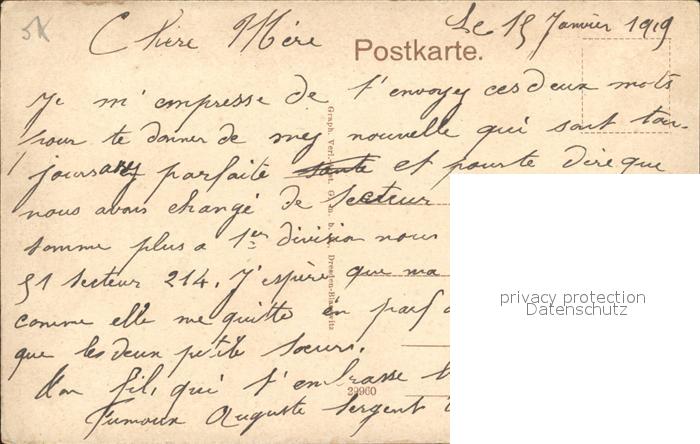 5X
Le 15 Janvier 1919
Chère Mére
Postkarte.
Je m'empresse de t'envoyer ces deux mots
pour te donner de mes nouvelle qui sont tou-
jours parfaite et pourte dire que
nous avons changé de secteur
somme plus a 1er division nous
51 secteur 214. J'espère que ma
comme elle me quitte en parf
que les deux petite soeurs.
ton fils qui t'embrasse
Auguste Sergent
Dresden-Blasewitz
29960
privacy protection
Datenschutz